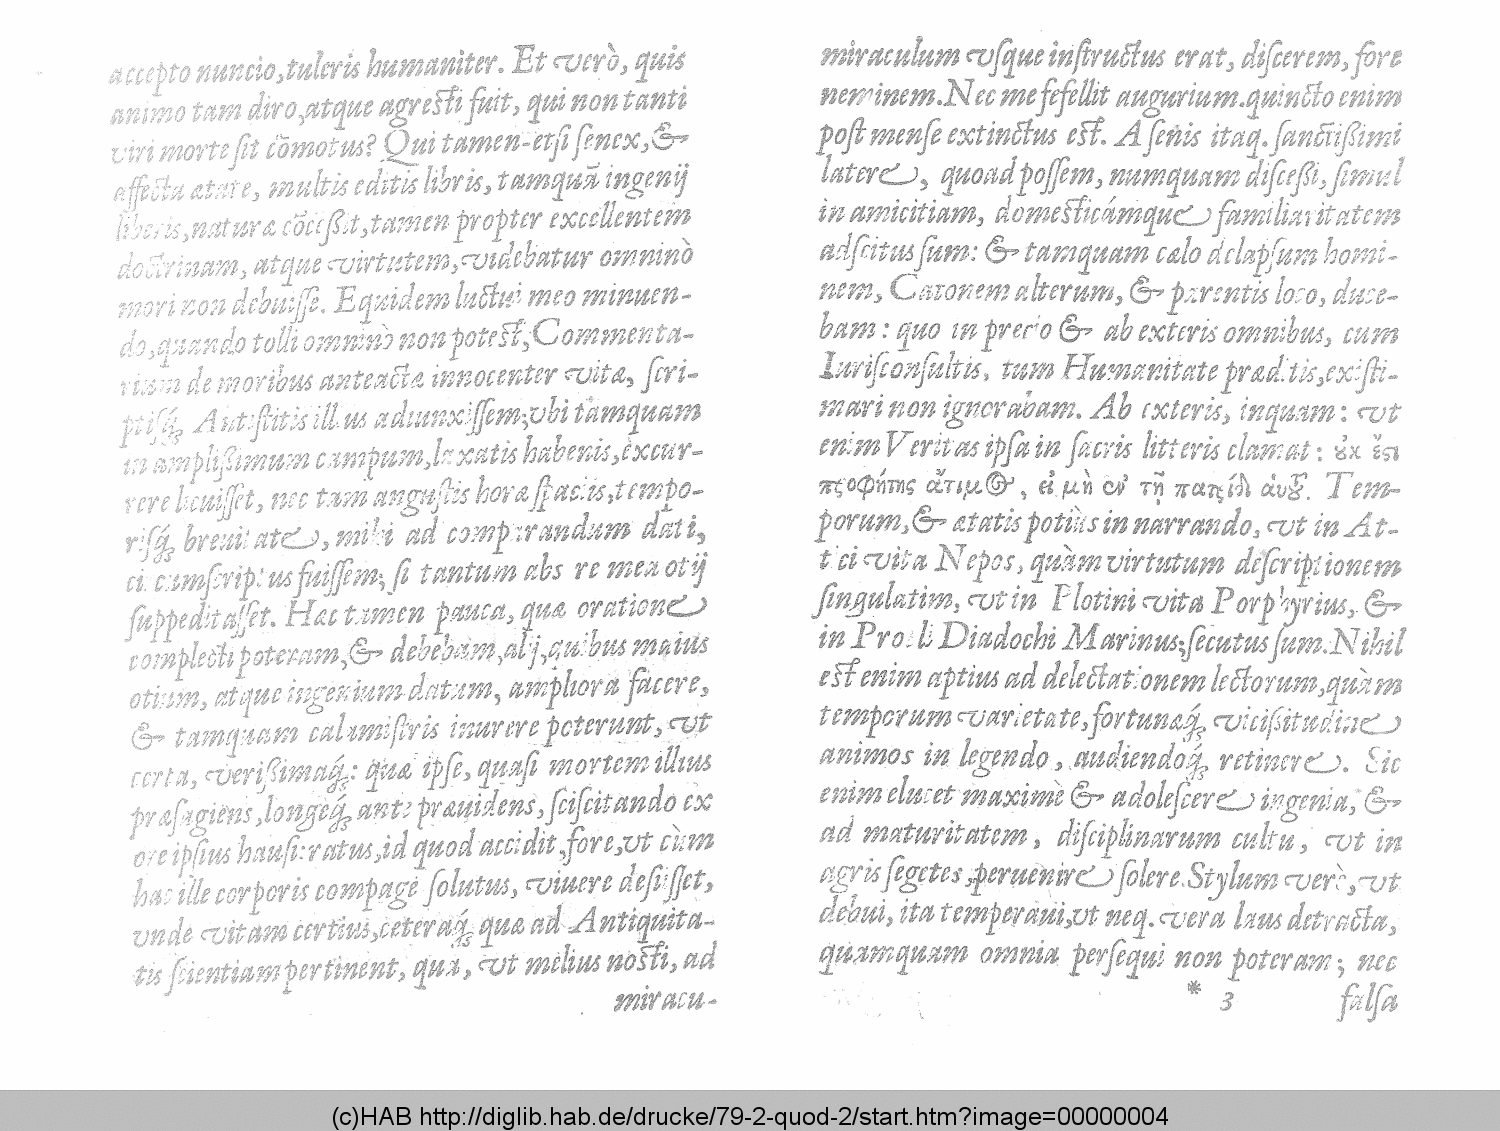 accepto nuncio, tuleris humaniter. Et verò, quis
animo tam diro, atque agresti fuit, qui non tanti
viri morte sit cōmotus? Qui tamen-etsi senex, &
affecta ætate, multis editis libris, tamquā ingenij
liberis, naturæ cōcessit, tamen propter excellentem
doctrinam, atque virtutem, videbatur omninò
mori non debuisse. Equidem luctui meo minuen-
do, quando tolli omninò non potest, Commenta-
rium de moribus anteactæ innocenter vitæ, scri-
ptisq́; Antistitis illius adiunxissem; vbi tamquam
in amplissimum campum, laxatis habenis, excur-
rere licuisset, nec tam angustis horæ spaciis, tempo-
risq́; breuitate, mihi ad comparandum dati,
circumscriptus fuissem; si tantum abs re mea otij
suppeditasset. Hæc tamen pauca, quæ oratione
complecti poteram, & debebam, alij, quibus maius
otium, atque ingenium datum, amphora facere,
& tamquam calamistris inurere poterunt, vt
certa, verißimaq́;: quæ ipse, quasi mortem illius
præsagiens, longeq́; ante præuidens, sciscitando ex
ore ipsius hausi: ratus, id quod accidit, fore, vt cùm
hac ille corporis compage solutus, viuere desisset,
vnde vitam certius, ceteraq́; quæ ad Antiquita-
tis scientiam pertinent, qua, vt melius nosti, ad
miracu-
miraculum vsque instructus erat, discerem, fore
neminem. Nec me fefellit augurium. quincto enim
post mense extinctus est. A senis itaq. sanctißimi
latere, quoad possem, numquam disceßi, simul
in amicitiam, domesticámque familiaritatem
adscitus sum: & tamquam cælo delapsum homi-
nem, Catonem alterum, & parentis loco, duce-
bam: quo in precio & ab exteris omnibus, cum
Iurisconsultis, tum Humanitate præditis, existi-
mari non ignorabam. Ab exteris, inquam: vt
enim Veritas ipsa in sacris litteris clamat: ὐκ ἔστι
προφήτης ἄτιμος, εἰ μὴ ἐν τῇ πατρίδι ἁυτ͂. Tem-
porum, & ætatis potiùs in narrando, vt in At-
tici vita Nepos, quàm virtutum descriptionem
singulatim, vt in Plotini vita Porphyrius, &
in Procli Diadochi Marinus; secutus sum. Nihil
est enim aptius ad delectationem lectorum, quàm
temporum varietate, fortunæq́; vicißitudine
animos in legendo, audiendoq́; retinere. Sic
enim elucet maximè & adolescere ingenia, &
ad maturitatem, disciplinarum cultu, vt in
agris segetes, peruenire solere. Stylum verò, vt
debui, ita temperaui, vt neq. vera laus detracta,
quamquam omnia persequi non poteram; nec
* 3 falsa
(c)HAB http://diglib.hab.de/drucke/79-2-quod-2/start.htm?image=00000004